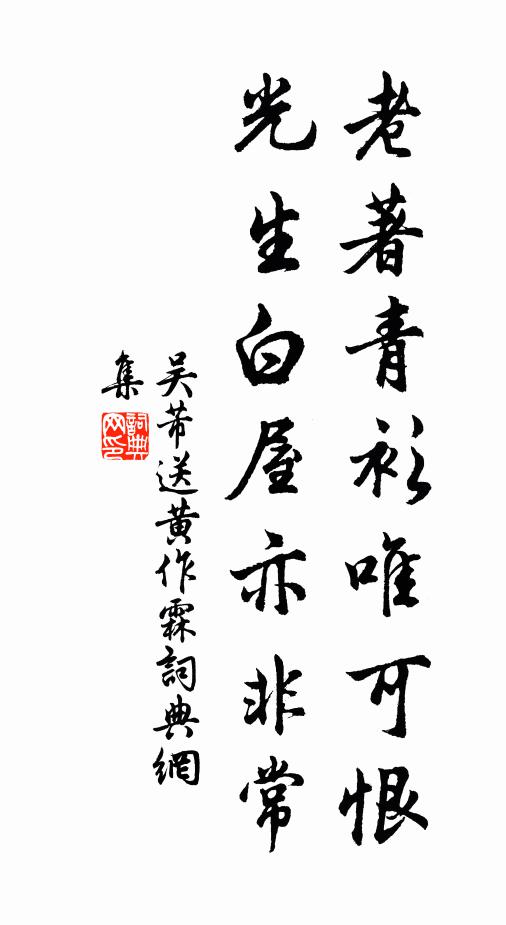 老著青衫唯可恨
光生白屋亦非常
吴芾送黄作霖詞典網
集
詞典
网印